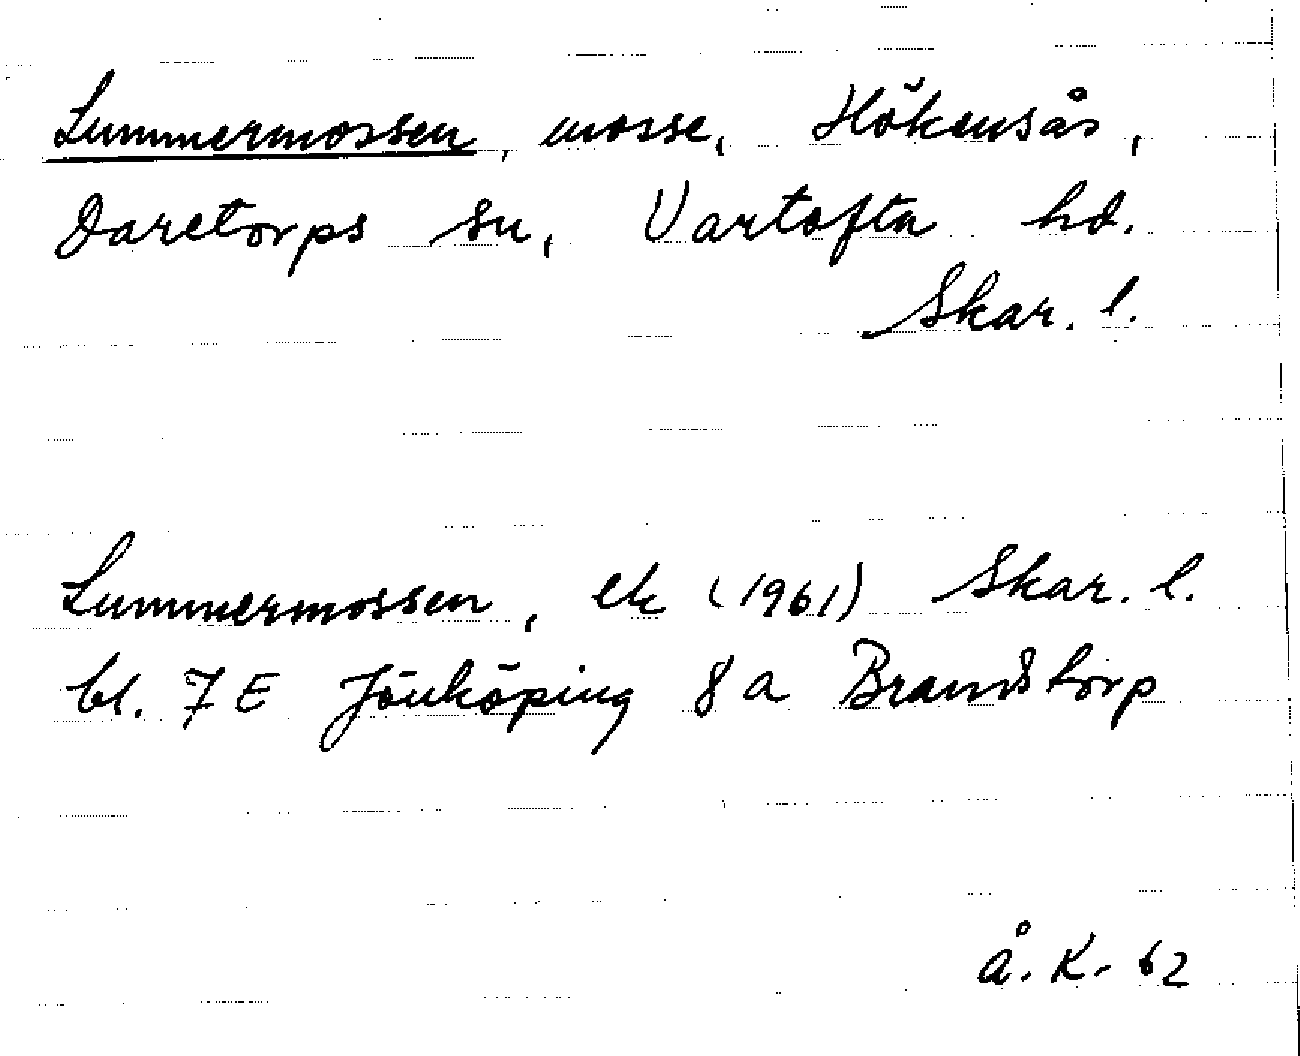 Lummermossen, mosse, Hökensås,
Daretorps sn, Vartofta hd.
Skar. l.
Lummermossen, ek (1961) Skar. l.
bl. 7 E Jönköping 8 a Brandstorp
Å. K. 62